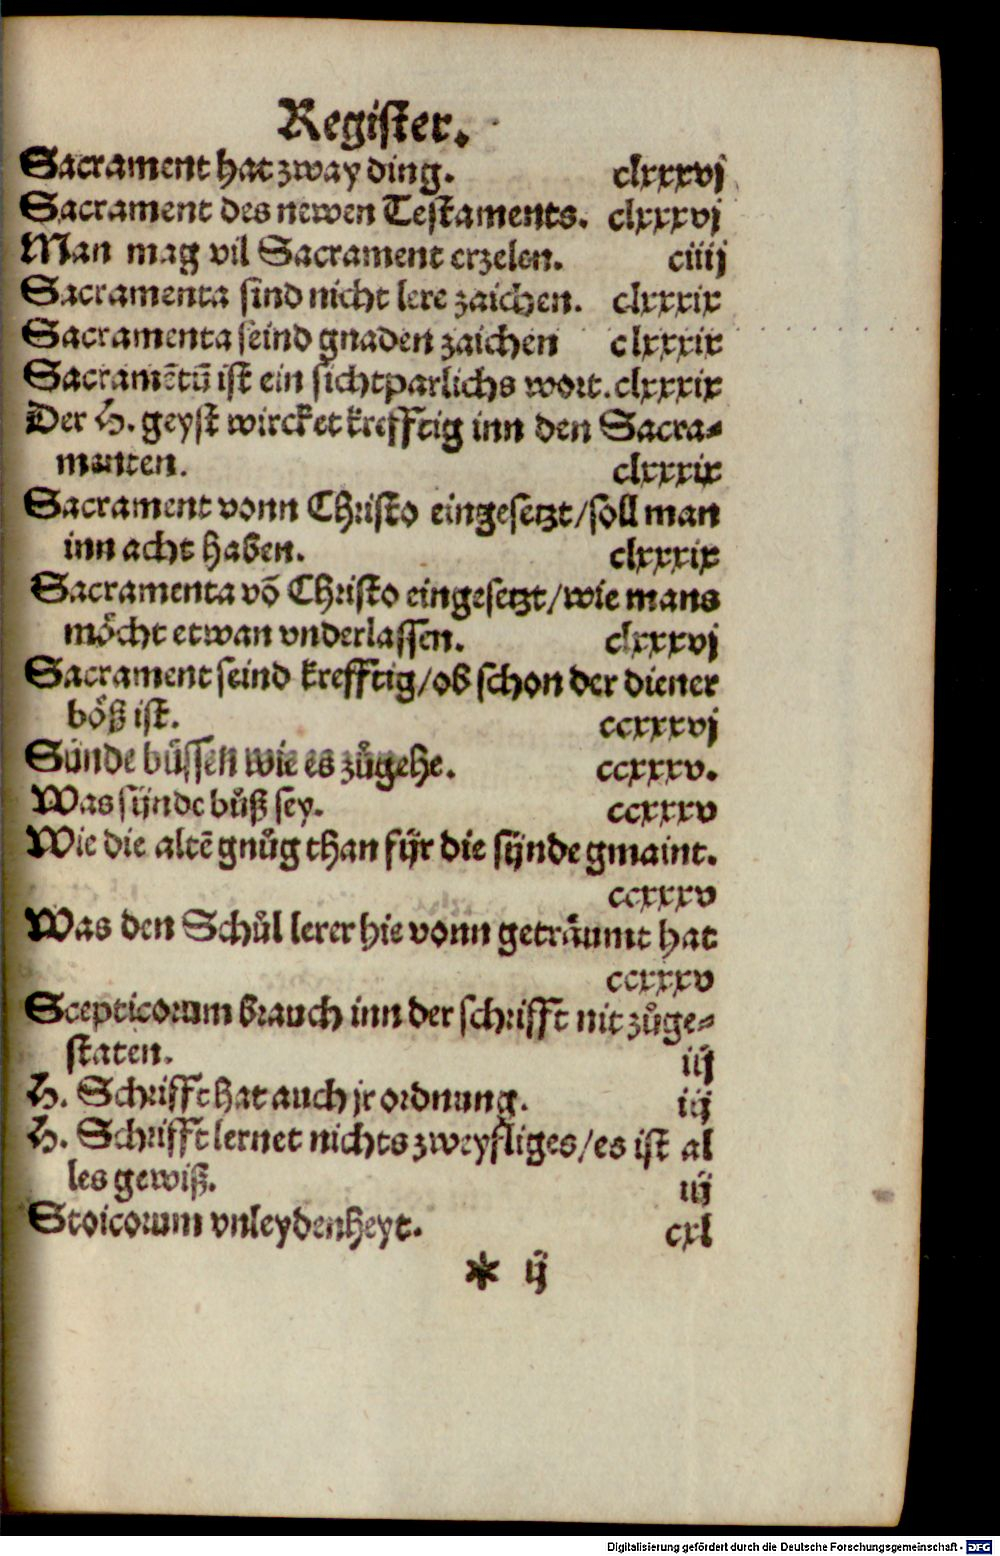 Register.
Sacrament hat zway ding. clxxxvj
Sacrament des newen Testaments. clxxxvj
Man mag vil Sacrament erzelen. ciiij
Sacramenta sind nicht lere zaichen. clxxxix
Sacramenta seind gnaden zaichen clxxxix
Sacramētū ist ein sichtparlichs wort. clxxxix
Der H. geyst wircket krefftig inn den Sacra⸗
manten. clxxxix
Sacrament vonn Christo eingesetzt/soll man
inn acht haben. clxxxix
Sacramenta võ Christo eingesetzt/wie mans
möcht etwan vnderlassen. clxxxvj
Sacrament seind krefftig/ob schon der diener
böß ist. ccxxxvj
Sünde büssen wie es zůgehe. ccxxxv.
Was sünde bůß sey. ccxxxv
Wie die altē gnůg than für die sünde gmaint.
ccxxxv
Was den Schůl lerer hie vonn geträumt hat
ccxxxv
Scepticorum brauch inn der schrifft nit zůge⸗
staten. iij
H. Schrifft hat auch jr ordnung. iij
H. Schrifft lernet nichts zweyfliges/es ist al
les gewiß. iij
Stoicorum vnleydenheyt. cxl
* ij
Digitalisierung gefördert durch die Deutsche Forschungsgemeinschaft - DFG